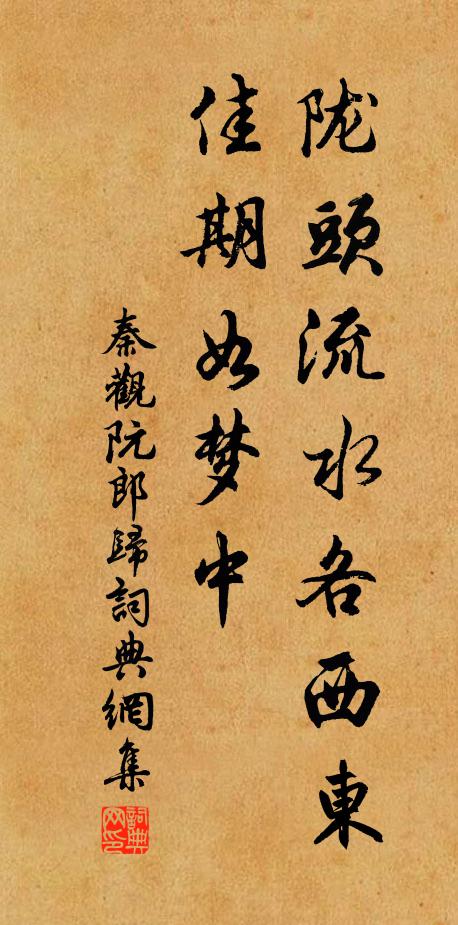 陇頭流水各西東
佳期如梦中
秦觀阮郎歸詞典網集
詞典网印